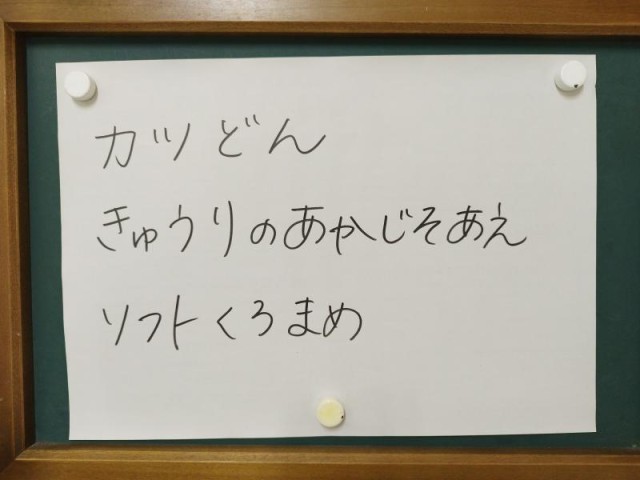 カツどん
きゅうりのあかじそあえ
ソフトくろまめ